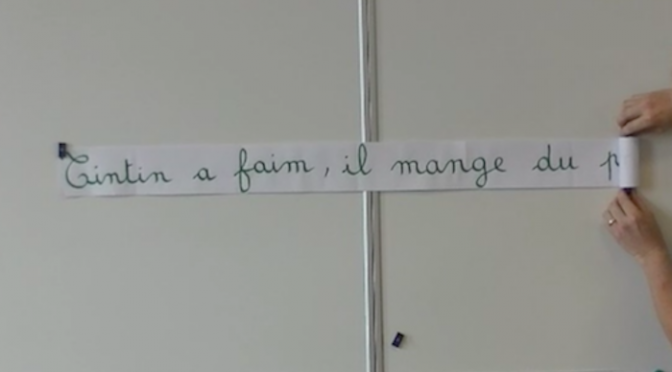 Tintin a faim, il mange du p